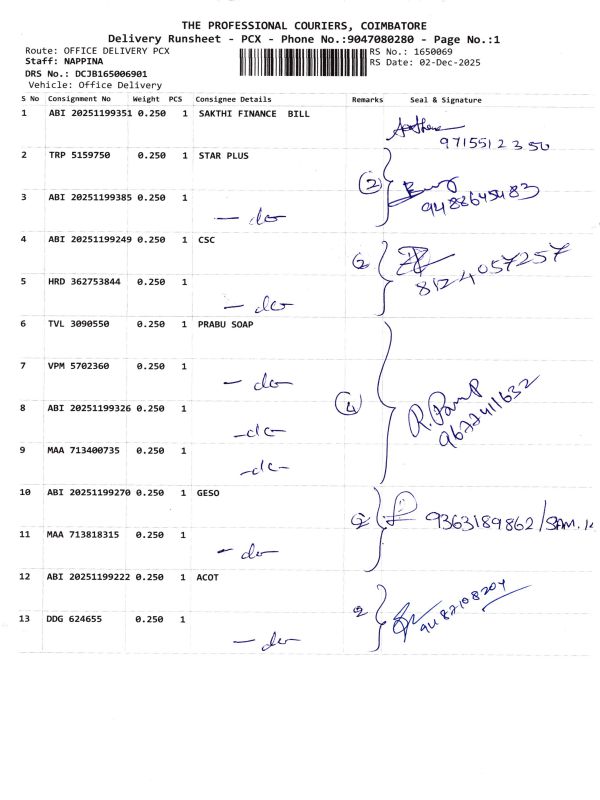 THE PROFESSIONAL COURIERS, COIMBATORE
Delivery Runsheet - PCX - Phone No.:9047080280 - Page No.:1
Route: OFFICE DELIVERY PCX RS No.: 1650069
Staff: NAPPINA RS Date: 02-Dec-2025
DRS No.: DCJB165006901
Vehicle: Office Delivery
S No Consignment No Weight PCS Consignee Details Remarks Seal & Signature
1 ABI 20251199351 0.250 1 SAKTHI FINANCE BILL
9715512350
2 TRP 5159750 0.250 1 STAR PLUS
2
9488645483
3 ABI 20251199385 0.250 1
- do
4 ABI 20251199249 0.250 1 CSC
2
8124057257
5 HRD 362753844 0.250 1
- do
6 TVL 3090550 0.250 1 PRABU SOAP
7 VPM 5702360 0.250 1
- do
8 ABI 20251199326 0.250 1
4
9677411632
- do
9 MAA 713400735 0.250 1
- do
10 ABI 20251199270 0.250 1 GESO
2 9363189862/SAM.K
11 MAA 713818315 0.250 1
- do
12 ABI 20251199222 0.250 1 ACOT
2
13 DDG 624655 0.250 1
- do